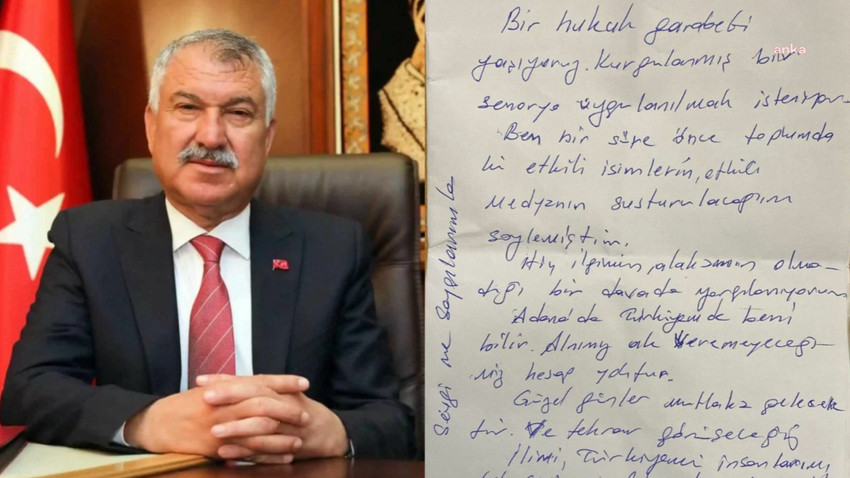 Bir hukuk garabeti
anka
yaşıyoruz. Kurgulanmış bir
senaryo uygulanılmak isteniyor.
Ben bir süre önce toplumda
ki etkili isimlerin, etkili
Medyanın susturulacağını
söylemiştim.
Hiç ilgimin, alakamın olma-
dığı bir davada yargılanıyorum
Adana'da Türkiyemde beni
bilir. Alnımız ak Veremeyeceği-
miz hesap yoktur.
Güzel günler mutlaka gelecek
tir. Ve tekrar görüşeceğiz
İlimi, Türkiyemi insanlarımı,
Sevgi ve Saygılarımla